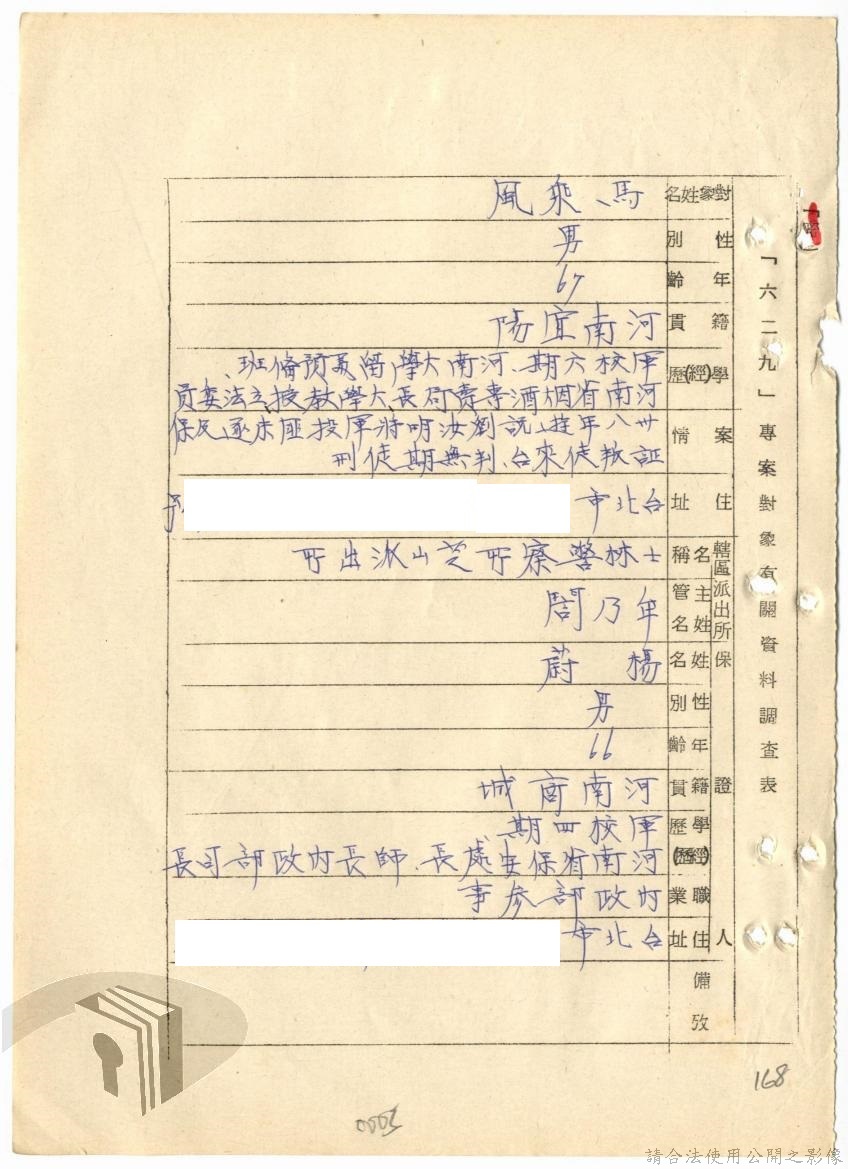 「密」
「六二九」專案對象有關資料調查表
對象姓名
馬乘風
性別
男
年齡
67
籍貫
河南宜陽
學(經)歷
軍校六期、河南大學留美預備班、
河南省烟酒專賣局長、大學教授立法委員
案情
卅八年遊說劉汝明將軍投匪未逐民保
証叛徒來台、判無期徒刑
住址
台北市
轄區派出所
名稱
士林警察所芝山派出所
主管姓名
年乃閣
保證人
姓名
楊蔚
性別
男
年齡
66
籍貫
河南商城
學(經)歷
軍校四期
河南省保安處長、師長內政部司長
職業
內政部參事
住址
台北市
備攷
168
0003
請合法使用公開之影像